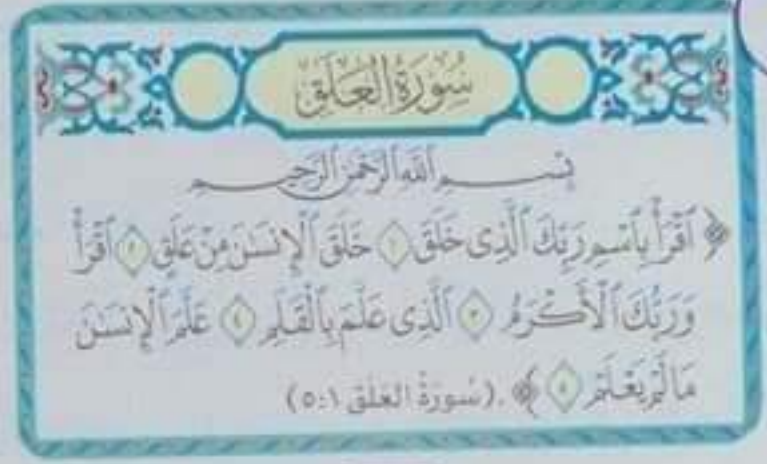 سُورَةُ العَلَقِ
بِسْمِ ٱللَّهِ ٱلرَّحْمَٰنِ ٱلرَّحِيمِ
﴿ ٱقْرَأْ بِٱسْمِ رَبِّكَ ٱلَّذِى خَلَقَ ١ خَلَقَ ٱلْإِنسَٰنَ مِنْ عَلَقٍ ٢ ٱقْرَأْ
وَرَبُّكَ ٱلْأَكْرَمُ ٣ ٱلَّذِى عَلَّمَ بِٱلْقَلَمِ ٤ عَلَّمَ ٱلْإِنسَٰنَ
مَا لَمْ يَعْلَمْ ٥ ﴾. (سُورَةُ العَلَقِ ٥:١)